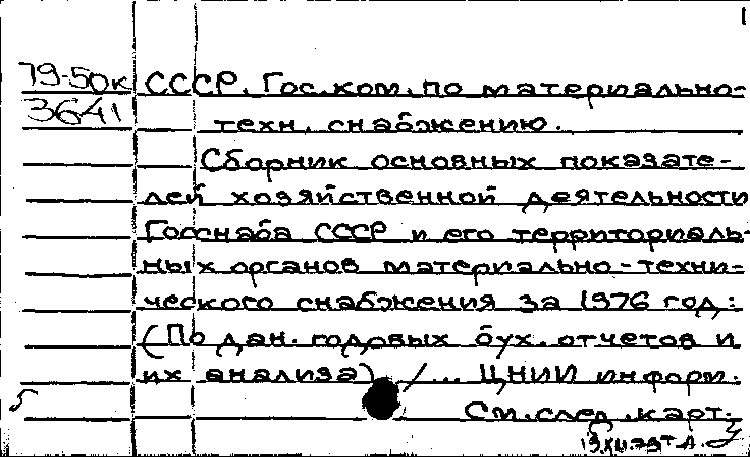 79-50к СССР. Гос.ком.по материально-
3641 техн. снабжению.
Сборник основных показате-
лей хозяйственной деятельности
Госснаба СССР и его территориаль-
ных органов материально-техни-
ческого снабжения за 1976 год:
(По дан. годовых бух. отчетов и
их анализа) /... ЦНИИ информ.
См.след.карт.